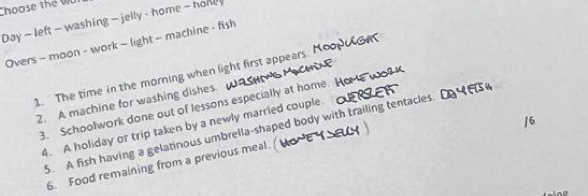 Choose the
Day – left – washing – jelly - home – honey
Overs – moon - work – light – machine - fish
1. The time in the morning when light first appears. MOONLIGHT
2. A machine for washing dishes. WASHING MACHINE
3. Schoolwork done out of lessons especially at home. HOMEWORK
4. A holiday or trip taken by a newly married couple. OVERSLEFT
5. A fish having a gelatinous umbrella-shaped body with trailing tentacles. DAYFISH
6. Food remaining from a previous meal. (HONEYJELLY)
/6